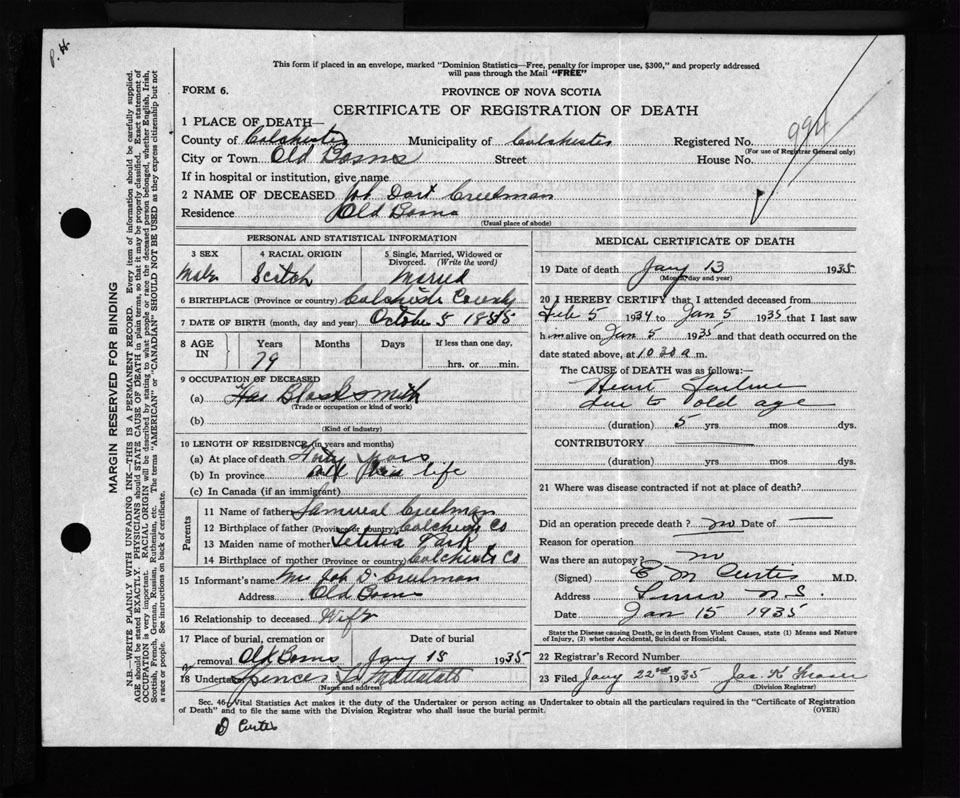 P. H.
This form if placed in an envelope, marked "Dominion Statistics—Free, penalty for improper use, $300," and properly addressed
will pass through the Mail "FREE"
FORM 6.
PROVINCE OF NOVA SCOTIA
CERTIFICATE OF REGISTRATION OF DEATH
1 PLACE OF DEATH—
County of Colchester Municipality of Colchester Registered No. 994
(For use of Registrar General only)
City or Town Old Barns Street House No.
If in hospital or institution, give name
2 NAME OF DECEASED Job Dart Creelman
Residence Old Barns
(Usual place of abode)
PERSONAL AND STATISTICAL INFORMATION
3 SEX 4 RACIAL ORIGIN 5 Single, Married, Widowed or
Divorced. (Write the word)
Male Scotch Maried
6 BIRTHPLACE (Province or country) Colchester County
7 DATE OF BIRTH (month, day and year) October 5 1855
8 AGE IN Years Months Days If less than one day,
79 hrs. or min.
9 OCCUPATION OF DECEASED
(a) Blacksmith
(Trade or occupation or kind of work)
(b)
(Kind of industry)
10 LENGTH OF RESIDENCE (in years and months)
(a) At place of death
(b) In province all life
(c) In Canada (if an immigrant)
Parents
11 Name of father Creelman
12 Birthplace of father (Province or country) Colchester Co
13 Maiden name of mother Letitia
14 Birthplace of mother (Province or country) Colchester Co
15 Informant's name Mrs Job D. Creelman
Address Old Barns
16 Relationship to deceased Wife
17 Place of burial, cremation or Date of burial
removal Old Barns Jany 15 1935
18 Undertaker Spencer
(Name and address)
MEDICAL CERTIFICATE OF DEATH
19 Date of death Jany 13 1935
(Month, day and year)
20 I HEREBY CERTIFY that I attended deceased from
Feb 5 1934 to Jan 5 1935 that I last saw
him alive on Jan 5 1935, and that death occurred on the
date stated above, at 10.30 a m.
The CAUSE of DEATH was as follows:—
Heart Failure
due to old age
(duration) 5 yrs. mos. dys.
CONTRIBUTORY
(duration) yrs. mos. dys.
21 Where was disease contracted if not at place of death?
Did an operation precede death? no Date of —
Reason for operation
Was there an autopsy? no
(Signed) E M Curtis M.D.
Address Truro N.S.
Date Jan 15 1935
State the Disease causing Death, or in death from Violent Causes, state (1) Means and Nature
of Injury, (2) whether Accidental, Suicidal or Homicidal.
22 Registrar's Record Number
23 Filed Jany 22nd 1935 Jas. K Fraser
(Division Registrar)
Sec. 46, Vital Statistics Act makes it the duty of the Undertaker or person acting as Undertaker to obtain all the particulars required in the "Certificate of Registration
of Death" and to file the same with the Division Registrar who shall issue the burial permit. (OVER)
D Curtis
MARGIN RESERVED FOR BINDING
N.B.—WRITE PLAINLY WITH UNFADING INK—THIS IS A PERMANENT RECORD. Every item of information should be carefully supplied.
AGE should be stated EXACTLY. PHYSICIANS should STATE CAUSE OF DEATH in plain terms, so that it may be properly classified. Exact statement of
OCCUPATION is very important. RACIAL ORIGIN will be described by stating to what people or race the deceased person belonged, whether English, Irish,
Scottish, French, German, Russian, Ruthenian, etc. The terms "AMERICAN" or "CANADIAN" SHOULD NOT BE USED as they express citizenship but not
a race or people. See instructions on back of certificate.